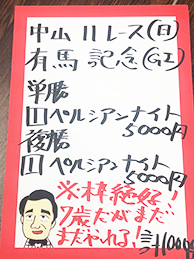 中山11レース(日)
有馬記念(GI)
単勝
1ペルシアンナイト
5000円
複勝
1ペルシアンナイト
5000円
※枠絶好!
7歳だがまだ
まだやれる!